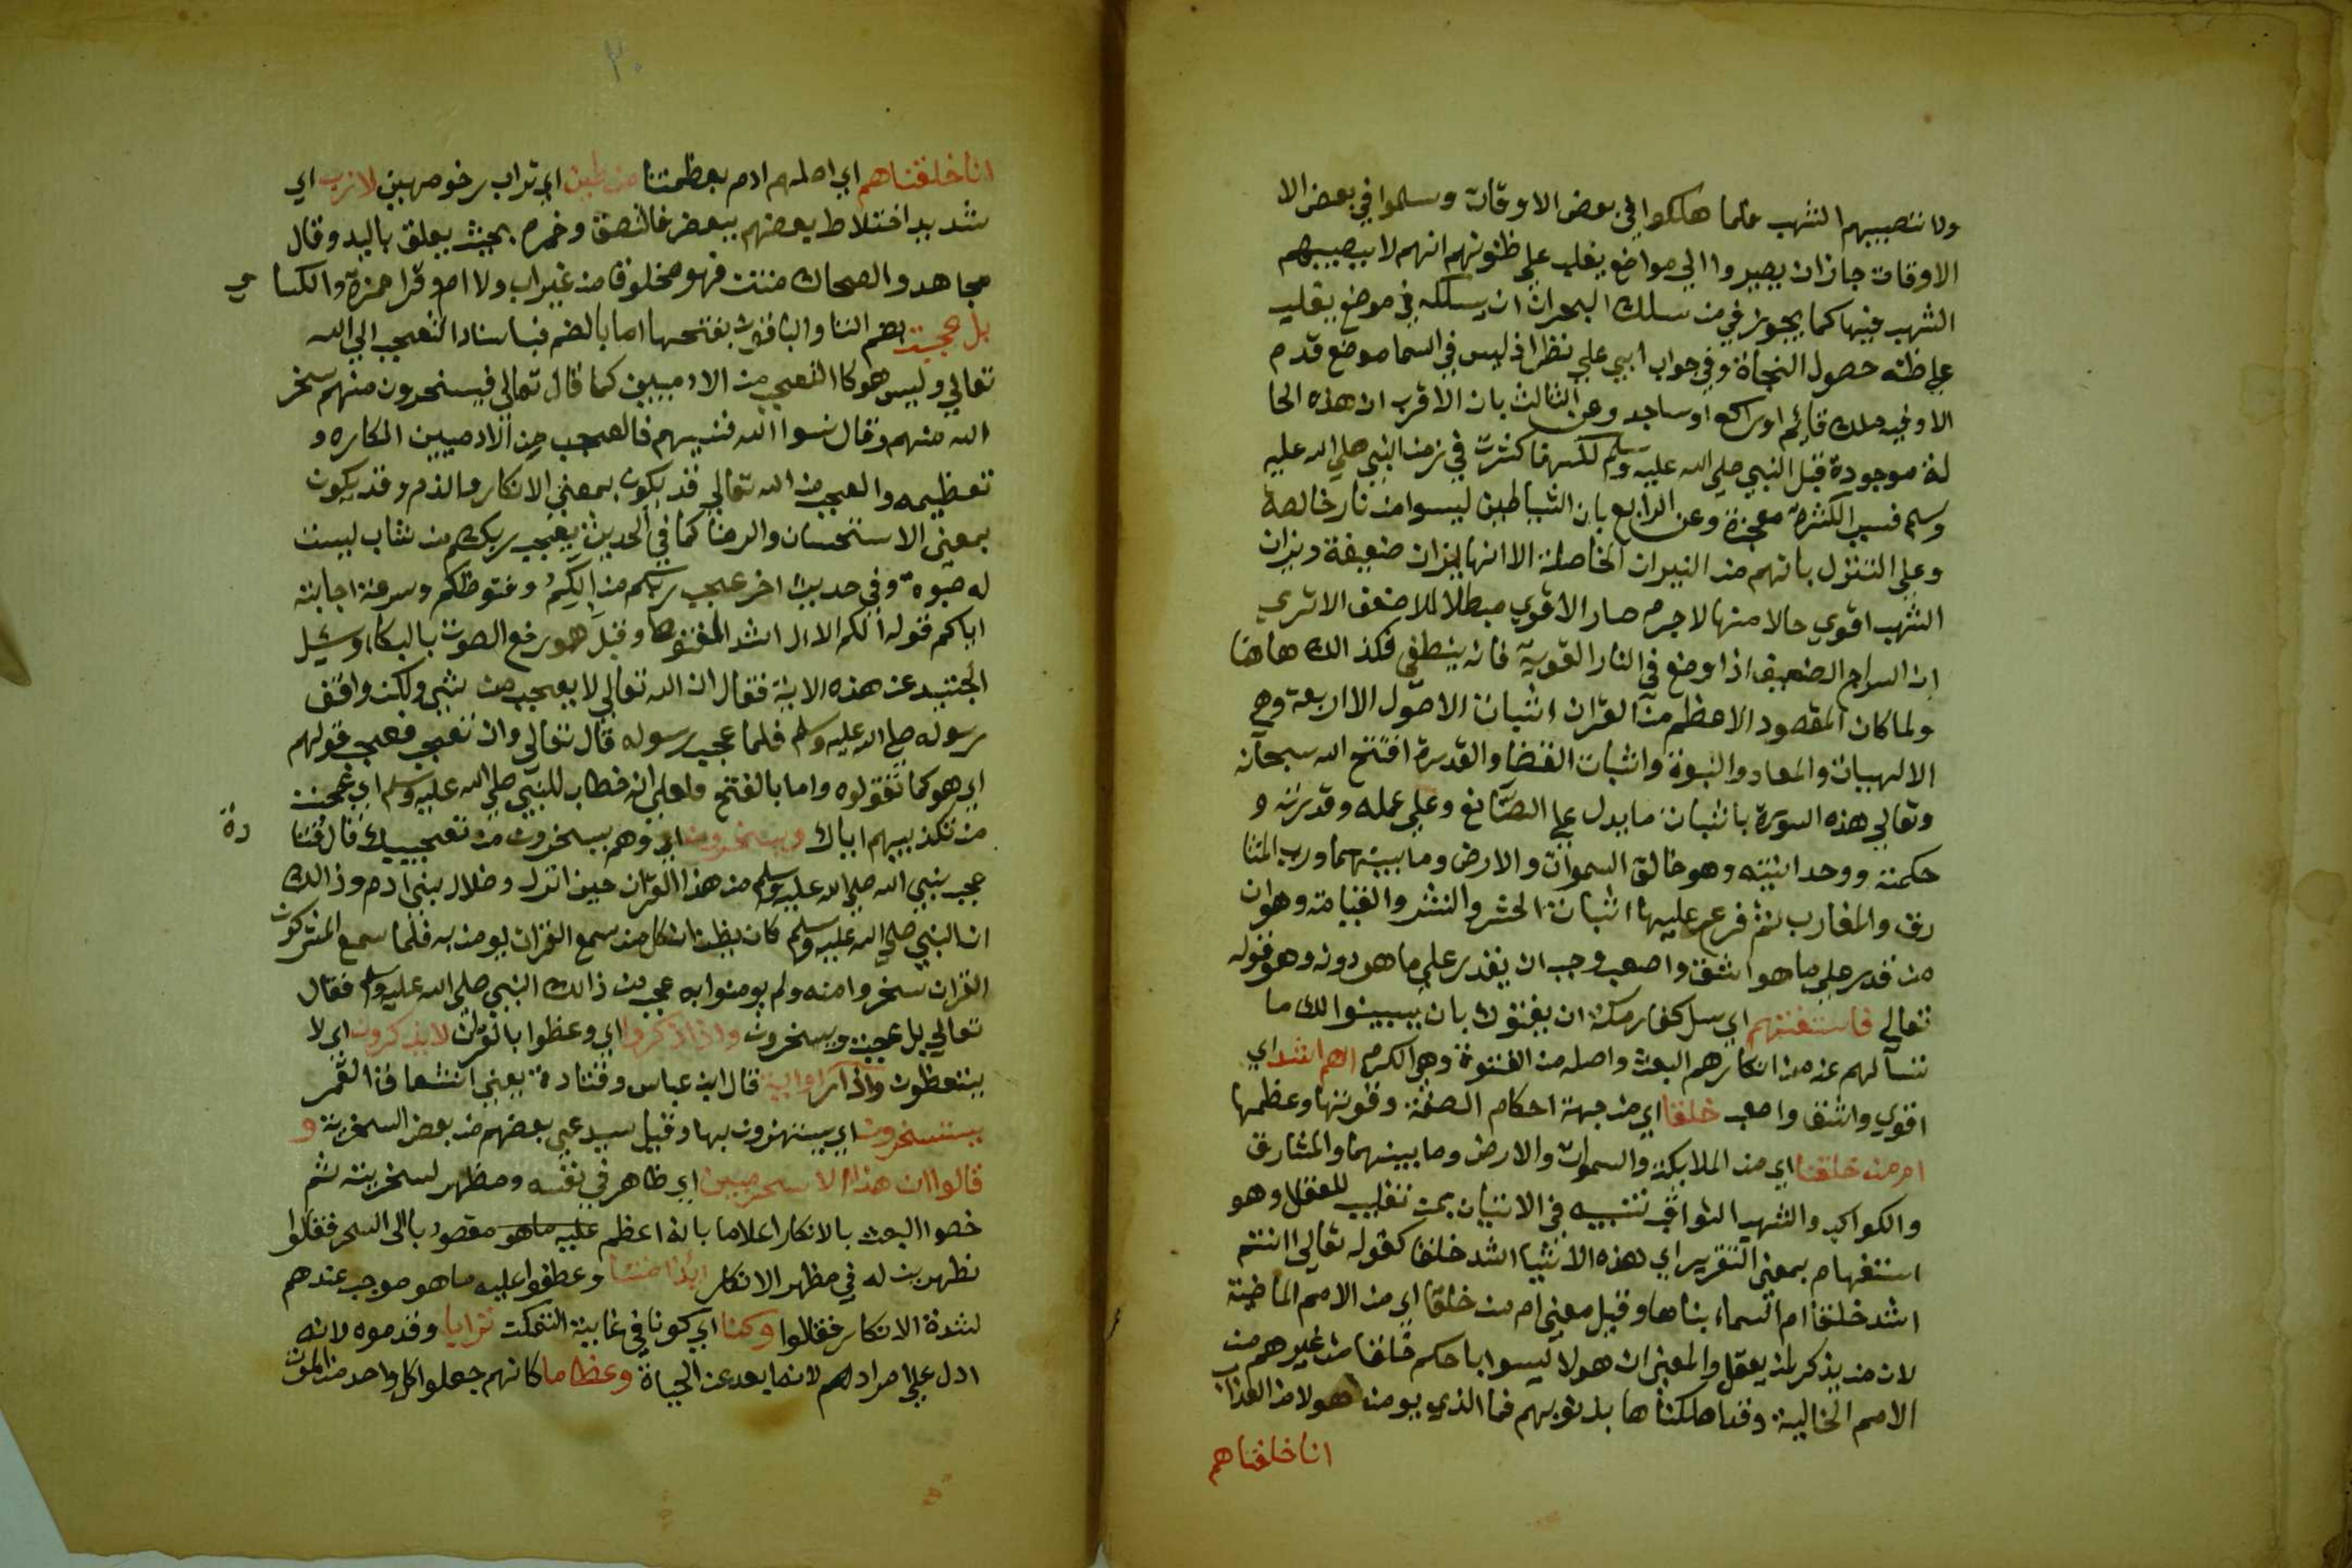 ولا تصيبهم الشهب فلما هلكوا في بعض الاوقات وسلموا في بعض الا
الاوقات جاز ان يصيروا الي مواضع يغلب علي ظنونهم انهم لا يصيبهم
الشهب فيها كما يجوز في من سلك البحر ان يسلكه في موضع يغلب
علي ظنه حصول النجاة وفي جواب ابي علي نظر اذ ليس في السما موضع قدم
الا وفيه ملك قائم او راكع او ساجد وعن الثالث بان الاقرب ان هذه الحا
لة موجودة قبل النبي صلي الله عليه وسلم لكنها كثرت في زمن النبي صلي الله عليه
وسلم فسبب الكثرة معجزة وعن الرابع بان الشياطين ليسوا من نار خالصة
وعلي التنزل بانهم من النيران الخاصلة الا انها نيران ضعيفة ونيران
الشهب اقوي حالا منها لاجرم صار الاقوي مبطلا للاضعف الا تري
ان السراج الضعيف اذا وضع في النار القوية فانه ينطفي فكذالك هاهنا
ولما كان المقصود الاعظم من القران اثبات الاصول الاربعة وهي
الالهيات والمعاد والنبوة واثبات القضا والقدرة افتتح الله سبحانه
وتعالي هذه السورة باثبات ما يدل علي الصانع وعلي عمله وقدرته و
حكمته ووحدانيته وهو خالق السموات والارض وما بينهما ورب المشا
رق والمغارب ثم فرع عليها اثبات الحشر والنشر والقيامة وهو ان
من قدر علي ما هو اشق واصعب وجب ان يقدر علي ما هو دونه وهو قوله
تعالي فاستفتهم اي سل كفار مكة ان يفتوك بان يبينوا لك ما
تسالهم عنه من انكارهم البعث واصله من الفتوة وهو الكرم اهم اشد اي
اقوي واشق واصعب خلقا اي من جهة احكام الصنعة وقوتها وعظمها
ام من خلقنا اي من الملايكة والسموات والارض وما بينهما والمشارق
والكواكب والشهب الثواقب تنبيه في الاتيان بمن تغليب للعقل وهو
استفهام بمعني التقرير اي هذه الاشيا اشد خلقا كقوله تعالي اانتم
اشد خلقا ام السماء بناها وقيل معني ام من خلقا اي من الامم الماضية
لان من يذكر لمن يعقل والمعني ان هولا ليسوا باحكم خلقا من غيرهم من
الامم الخالية وقد اهلكناها بذنوبهم فما الذي يومن هولا من العذاب
انا خلقناهم
٢٠
انا خلقناهم اي اصلهم ادم بعظمتنا من طين اي تراب رخو مهين لازب اي
شديد اختلاط بعضهم ببعض فالتصق وخمر بحيث يعلق باليد وقال
مجاهد والضحاك منتن فهو مخلوقا من غير اب ولا ام وقرا حمزة والكسا ي
بل عجبت بضم التا والباقون بفتحها اما بالضم فباسناد التعجب الي الله
تعالي وليس هو كا التعجب من الادميين كما قال تعالي فيسخرون منهم سخر
الله منهم وقال نسوا الله فنسيهم فالعجب من الادميين انكاره و
تعظيمه والعجب من الله تعالي قد يكون بمعني الانكار والذم وقد يكون
بمعني الاستحسان والرضا كما في الحديث يعجب ربكم من شاب ليست
له صبوة وفي حديث اخر عجب ربكم من الكم وقنوطكم وسرعة اجابته
اياكم قوله الكم الال اشد القنوط وقيل هو رفع الصوت بالبكاء وسئل
الجنيد عن هذه الاية فقال ان الله تعالي لا يعجب من شي ولكن وافق
رسوله صلي الله عليه وسلم فلما عجب رسوله قال تعالي وان تعجب فعجب قولهم
اي هو كما تقولوه واما بالفتح فعلي انه خطاب للنبي صلي الله عليه وسلم اي عجبت
من تكذيبهم اياك ويسخرون اي وهم يسخرون من تعجبيك قال قتا دة
عجب نبي الله صلي الله عليه وسلم من هذا القران حين انزل وضلال بني ادم وذالك
ان النبي صلي الله عليه وسلم كان يظن ان كل من سمع القران يومن به فلما سمع المشركون
القران سخروا منه ولم يومنوا به عجب من ذالك النبي صلي الله عليه وسلم فقال
تعالي بل عجبت ويسخرون واذا ذكروا اي وعظوا بالقران لا يذكرون اي لا
يتعظون واذا راوا اية قال ابن عباس وقتادة يعني انشقاق القمر
يستسخرون اي يستهزون بها وقيل يستدعي بعضهم من بعض السخرية و
قالوا ان هذا الا سحر مبين اي ظاهر في نفسه ومظهر لسخريته ثم
خصوا البعث بالانكار اعلاما بانه اعظم عليه ما هو مقصود بالي السحر فقالوا
مظهرين له في مظهر الانكار ائذا متنا وعطفوا عليه ما هو موجب عندهم
لشدة الانكار فقالوا وكنا اي كونا في غاية التمكن ترابا وقدموه لانه
ادل علي مرادهم لانه ابعد عن الحياة وعظاما كانهم جعلوا كل واحد من الموت